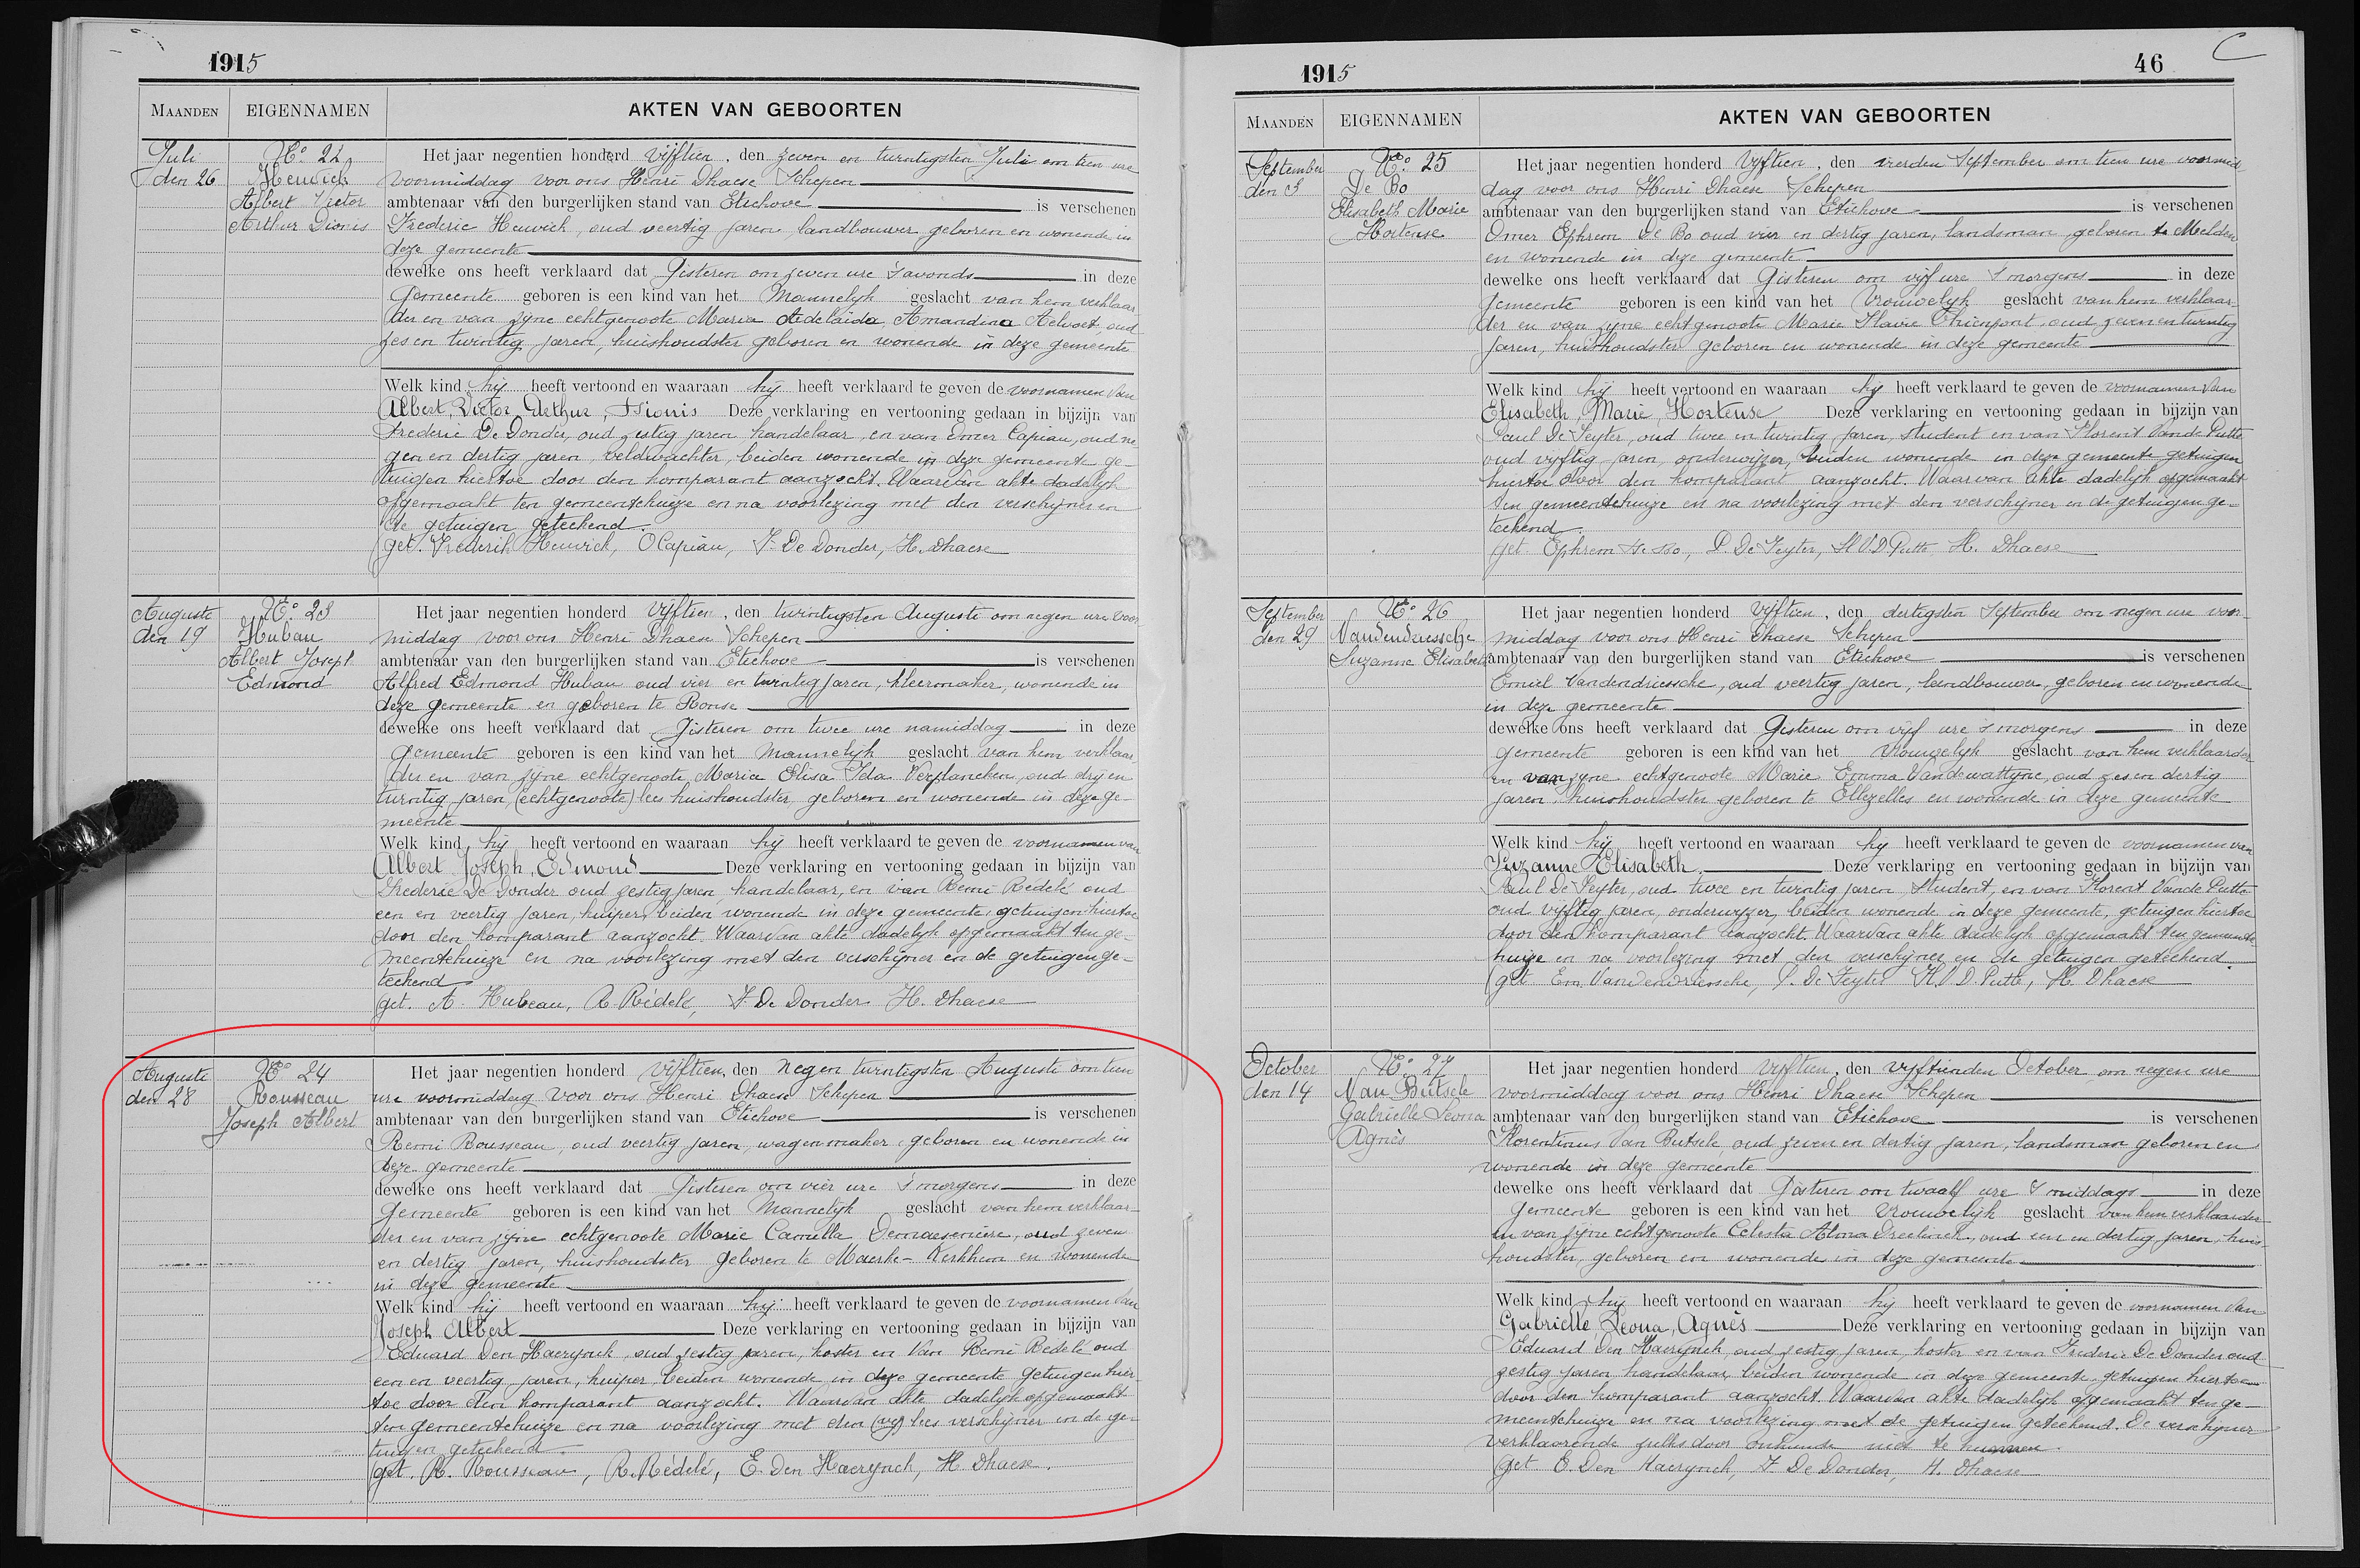 1915
MAANDEN EIGENNAMEN AKTEN VAN GEBOORTEN
Juli
den 26
N° 22
Heuvick
Albert Victor
Arthur Dionis
Het jaar negentien honderd vijftien, den zeven en twintigsten Juli om tien ure
voormiddag voor ons Henri Dhaese Schepen
ambtenaar van den burgerlijken stand van Etichove is verschenen
Frederic Heuvick, oud veertig jaren, landbouwer geboren en wonende in
deze gemeente
dewelke ons heeft verklaard dat Gisteren om zeven ure 's avonds in deze
Gemeente geboren is een kind van het Mannelijk geslacht van hem verklaar
der en van zijne echtgenoote Maria Adelaida Amandina Aelvoet, oud
zes en twintig jaren, huishoudster geboren en wonende in deze gemeente
Welk kind hij heeft vertoond en waaraan hij heeft verklaard te geven de voornamen van
Albert, Victor, Arthur, Dionis Deze verklaring en vertooning gedaan in bijzijn van
Frederic De Donder, oud zestig jaren handelaar, en van Omer Capiau, oud ne
gen en dertig jaren, veldwachter, beiden wonende in deze gemeente ge-
tuigen hiertoe door den komparant aanzocht. Waarvan akte dadelijk
opgemaakt ten gemeentehuize en na voorlezing met den verschijner en
de getuigen geteekend.
get. Frederik Heuvick, O Capiau, F. De Donder, H. Dhaese
Auguste
den 19
N° 23
Hubau
Albert Joseph
Edmond
Het jaar negentien honderd vijftien, den twintigsten Auguste om negen ure voor
middag voor ons Henri Dhaese Schepen
ambtenaar van den burgerlijken stand van Etichove is verschenen
Alfred Edmond Hubau oud vier en twintig jaren, kleermaker, wonende in
deze gemeente en geboren te Ronse
dewelke ons heeft verklaard dat Gisteren om twee ure namiddag in deze
gemeente geboren is een kind van het mannelijk geslacht van hem verklaar
der en van zijne echtgenoote Maria Elisa Ida Verplancken, oud drij en
twintig jaren, (echtgenoote) lees huishoudster geboren en wonende in deze ge-
meente
Welk kind hij heeft vertoond en waaraan hij heeft verklaard te geven de voornamen van
Albert Joseph, Edmond Deze verklaring en vertooning gedaan in bijzijn van
Frederic De Donder oud zestig jaren, handelaar, en van Remi Rédelé oud
een en veertig jaren, kuiper, beiden wonende in deze gemeente, getuigen hiertoe
door den komparant aanzocht. Waarvan akte dadelijk opgemaakt ten ge-
meentehuize en na voorlezing met den verschijner en de getuigen ge-
teekend
get. A. Hubeau, R. Rédelé, F. De Donder H. Dhaese
Auguste
den 28
N° 24
Rousseau
Joseph Albert
Het jaar negentien honderd vijftien, den negen twintigsten Auguste om tien
ure voormiddag voor ons Henri Dhaese Schepen
ambtenaar van den burgerlijken stand van Etichove is verschenen
Remi Rousseau, oud veertig jaren, wagenmaker, geboren en wonende in
deze gemeente
dewelke ons heeft verklaard dat Gisteren om vier ure 's morgens in deze
Gemeente geboren is een kind van het Mannelijk geslacht van hem verklaar-
der en van zijne echtgenoote Marie Camilla Demaeseneire, oud zeven
en dertig jaren, huishoudster geboren te Maerke-Kerkhem en wonende
in deze gemeente
Welk kind hij heeft vertoond en waaraan hij heeft verklaard te geven de voornamen van
Joseph Albert Deze verklaring en vertooning gedaan in bijzijn van
Eduard Den Haerynck, oud zestig jaren, koster en van Remi Rédelé oud
een en veertig jaren, kuiper, beiden wonende in deze gemeente getuigen hier-
toe door den komparant aanzocht. Waarvan akte dadelijk opgemaakt
ten gemeentehuize en na voorlezing met den (vij) lees verschijner en de ge-
tuigen geteekend.
get. R. Rousseau, R. Rédelé, E. Den Haerynck, H. Dhaese.
1915 46 C
MAANDEN EIGENNAMEN AKTEN VAN GEBOORTEN
September
den 3
N° 25
De Bo
Elisabeth Marie
Hortense
Het jaar negentien honderd vijftien, den vierden September om tien ure voormid-
dag voor ons Henri Dhaese Schepen
ambtenaar van den burgerlijken stand van Etichove is verschenen
Omer Ephrem De Bo oud vier en dertig jaren, landsman, geboren te Melden
en wonende in deze gemeente
dewelke ons heeft verklaard dat Gisteren om vijf ure 's morgens in deze
gemeente geboren is een kind van het Vrouwelijk geslacht van hem verklaar
der en van zijne echtgenoote Marie Flavie Thienpont, oud zeven en twintig
jaren, huishoudster geboren en wonende in deze gemeente
Welk kind hij heeft vertoond en waaraan hij heeft verklaard te geven de voornamen van
Elisabeth, Marie, Hortense Deze verklaring en vertooning gedaan in bijzijn van
Paul De Feyter, oud twee en twintig jaren, student en van Florent Vande Putte
oud vijftig jaren, onderwijzer, beiden wonende in deze gemeente getuigen
hiertoe door den komparant aanzocht. Waarvan akte dadelijk opgemaakt
ten gemeentehuize en na voorlezing met den verschijner en de getuigen ge-
teekend.
get. Ephrem De Bo, P. De Feyter, Fl V.D Putte H. Dhaese
September
den 29
N° 26
Vandendriessche
Suzanne Elisabeth
Het jaar negentien honderd vijftien, den dertigsten September om negen ure voor-
middag voor ons Henri Dhaese Schepen
ambtenaar van den burgerlijken stand van Etichove is verschenen
Emiel Vandendriessche, oud veertig jaren, landbouwer, geboren en wonende
in deze gemeente
dewelke ons heeft verklaard dat Gisteren om vijf ure 's morgens in deze
gemeente geboren is een kind van het vrouwelijk geslacht van hem verklaarder
en van zijne echtgenoote Marie Emma Vandewattyne, oud zes en dertig
jaren, huishoudster geboren te Ellezelles en wonende in deze gemeente
Welk kind hij heeft vertoond en waaraan hij heeft verklaard te geven de voornamen van
Suzanne Elisabeth. Deze verklaring en vertooning gedaan in bijzijn van
Paul De Feyter, oud twee en twintig jaren, student, en van Florent Vande Putte
oud vijftig jaren, onderwijzer, beiden wonende in deze gemeente, getuigen hiertoe
door den komparant aanzocht. Waarvan akte dadelijk opgemaakt ten gemeente
huize en na voorlezing met den verschijner en de getuigen geteekend.
get. Em. Vandendriessche, P. De Feyter Fl. V.D. Putte, H. Dhaese
October
den 14
N° 27
Van Butsele
Gabrielle Leona
Agnès
Het jaar negentien honderd vijftien, den vijftienden October om negen ure
voormiddag voor ons Henri Dhaese Schepen
ambtenaar van den burgerlijken stand van Etichove is verschenen
Florentinus Van Butsele, oud zeven en dertig jaren, landsman geboren en
wonende in deze gemeente
dewelke ons heeft verklaard dat Gisteren om twaalf ure 's middags in deze
Gemeente geboren is een kind van het vrouwelijk geslacht van hem verklaarder
en van zijne echtgenoote Celesta Alma oud een en dertig jaren, huis-
houdster, geboren en wonende in deze gemeente
Welk kind hij heeft vertoond en waaraan hij heeft verklaard te geven de voornamen van
Gabrielle, Leona, Agnès Deze verklaring en vertooning gedaan in bijzijn van
Eduard Den Haerynck, oud zestig jaren, koster en van Frederic De Donder oud
zestig jaren handelaar, beiden wonende in deze gemeente, getuigen hiertoe
door den komparant aanzocht. Waarvan akte dadelijk opgemaakt ten ge-
meentehuize en na voorlezing met de getuigen geteekend. De verschijner
verklaarende zulks door onkunde niet te kunnen.
get E. Den Haerynck, F. De Donder, H. Dhaese